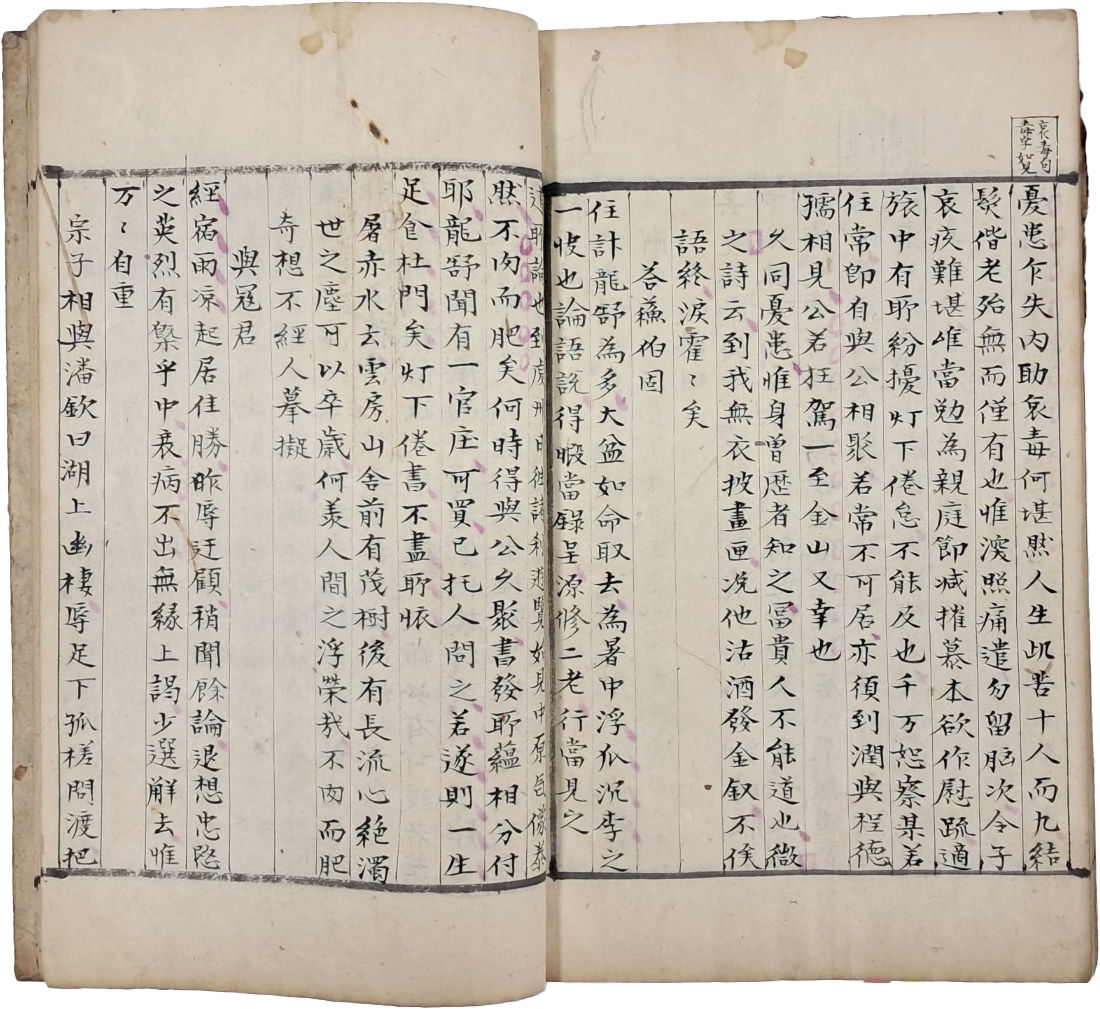 哀毒句
毒字贺
憂患乍失内助哀毒何堪然人生此苦十人而九結
髮偕老殆無而僅有也惟深照痛遣勿留胸次令子
哀疚難堪惟當勉為親庭節減摧慕本欲作慰疏適
旅中有所紛擾灯下倦怠不能及也千万恕察某若
住常即自與公相聚若常不可居亦須到潤與程德
孺相見公若枉駕一至金山又幸也
久同憂患惟身曾歷者知之富貴人不能道也微
之詩云到我無衣披畫匣况他沽酒發金釵不俟
語終淚霍〻矣
答蘇伯固
住計龍舒為多大盆如命取去為暑中浮瓜沉李之
一快也論語說得暇當錄呈源修二老行當見之
并道所論也到虔州日往諸刹遊覽如見中原氣像泰
然不肉而肥矣何時得與公久聚書發所蘊相分付
耶龍舒聞有一官庄可買已托人問之若遂則一生
足食杜門矣灯下倦書不盡所懷
屠赤水云雲房山舍前有茂樹後有長流心絶濁
世之塵可以卒歲何羡人間之浮榮哉不肉而肥
奇想不經人摹擬
與冦君
經宿雨凉起居佳勝昨辱迂顧稍聞餘論退想忠臣
之英烈有槩乎中衰病不出無緣上謁少選解去惟
万〻自重
宗子相與潘欽曰湖上幽棲辱足下孤槎問渡把